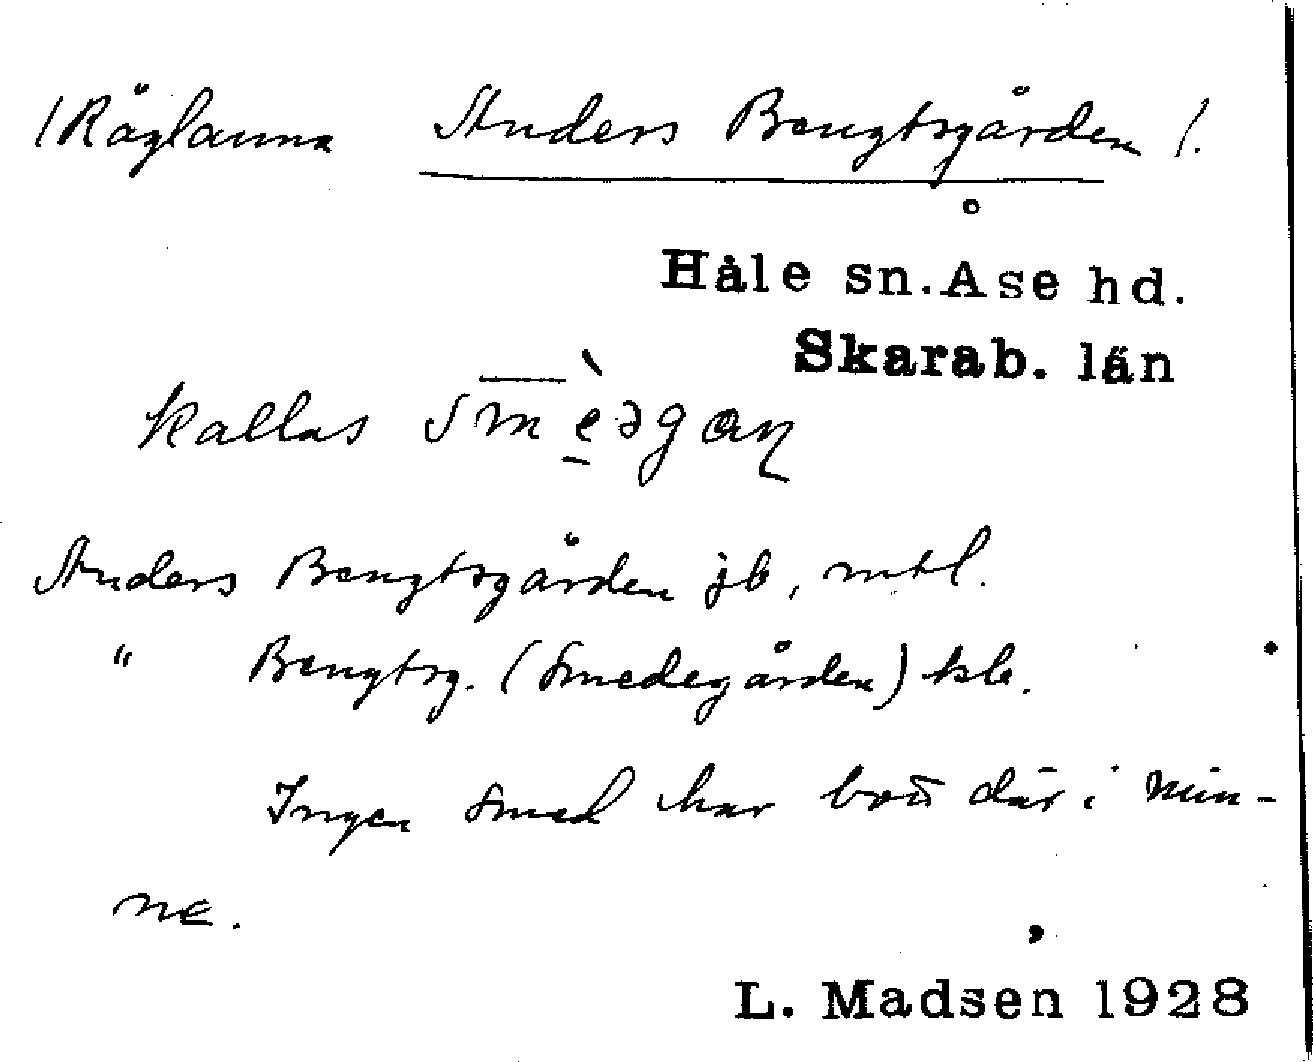 /Råglanna Anders Bengtsgården/.
Håle sn. Åse hd.
Skarab. län
kallas smèəgan
Anders Bengtsgården jb, mtl.
" Bengtsg. (Smedegården) kb.
Ingen smed har bott där i min-
ne.
L. Madsen 1928